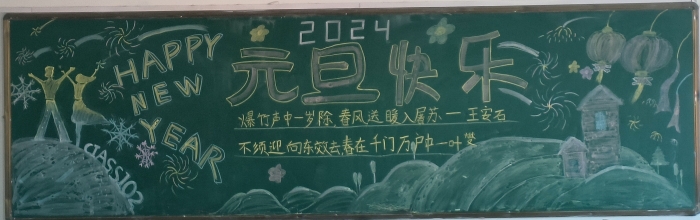 2024
HAPPY
NEW
YEAR
元旦快乐
爆竹声中一岁除 春风送暖入屠苏一一王安石
不须迎向东效去春在千门万户中一叶燮
CLASS102